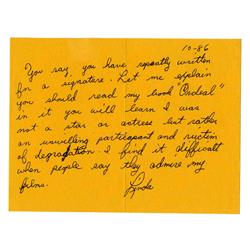 10-86
You say, you have repeatly written
for a signature. Let me explain
you should read my book "Ordeal"
in it you will learn I was
not a star or actress but rather
an unwilling participant and victim
of degradation. I find it difficult
when people say they admire my
films.
Linda